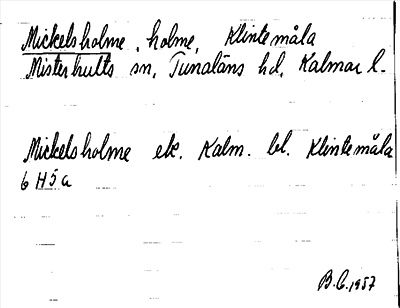 Mickelsholme, holme, Klintemåla
Misterhults sn, Tunaläns hd, Kalmar l.
Mickelsholme ek. Kalm. bl. Klintemåla
6 H5a
B.C. 1957